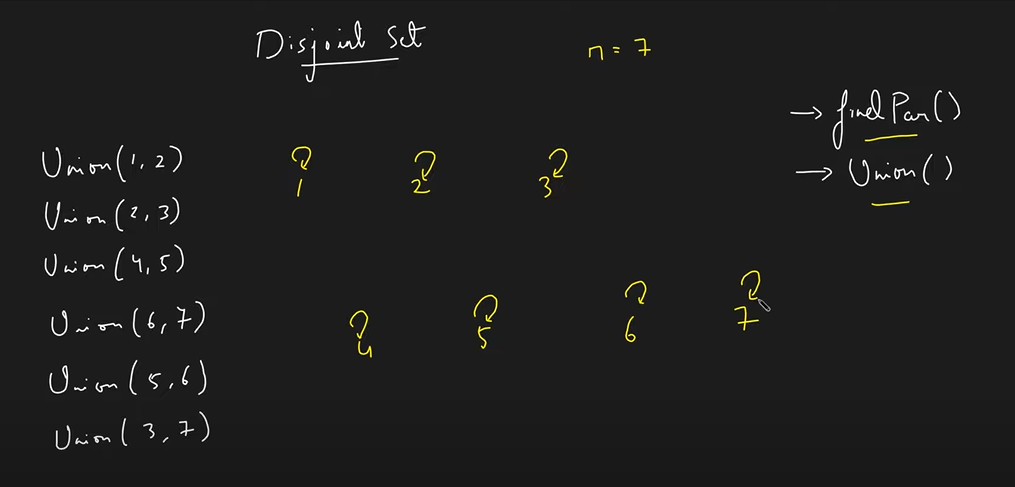 Disjoint Set
n = 7
→ findPar()
→ Union()
Union(1, 2)
Union(2, 3)
Union(4, 5)
Union(6, 7)
Union(5, 6)
Union(3, 7)
1 2 3
4 5 6 7